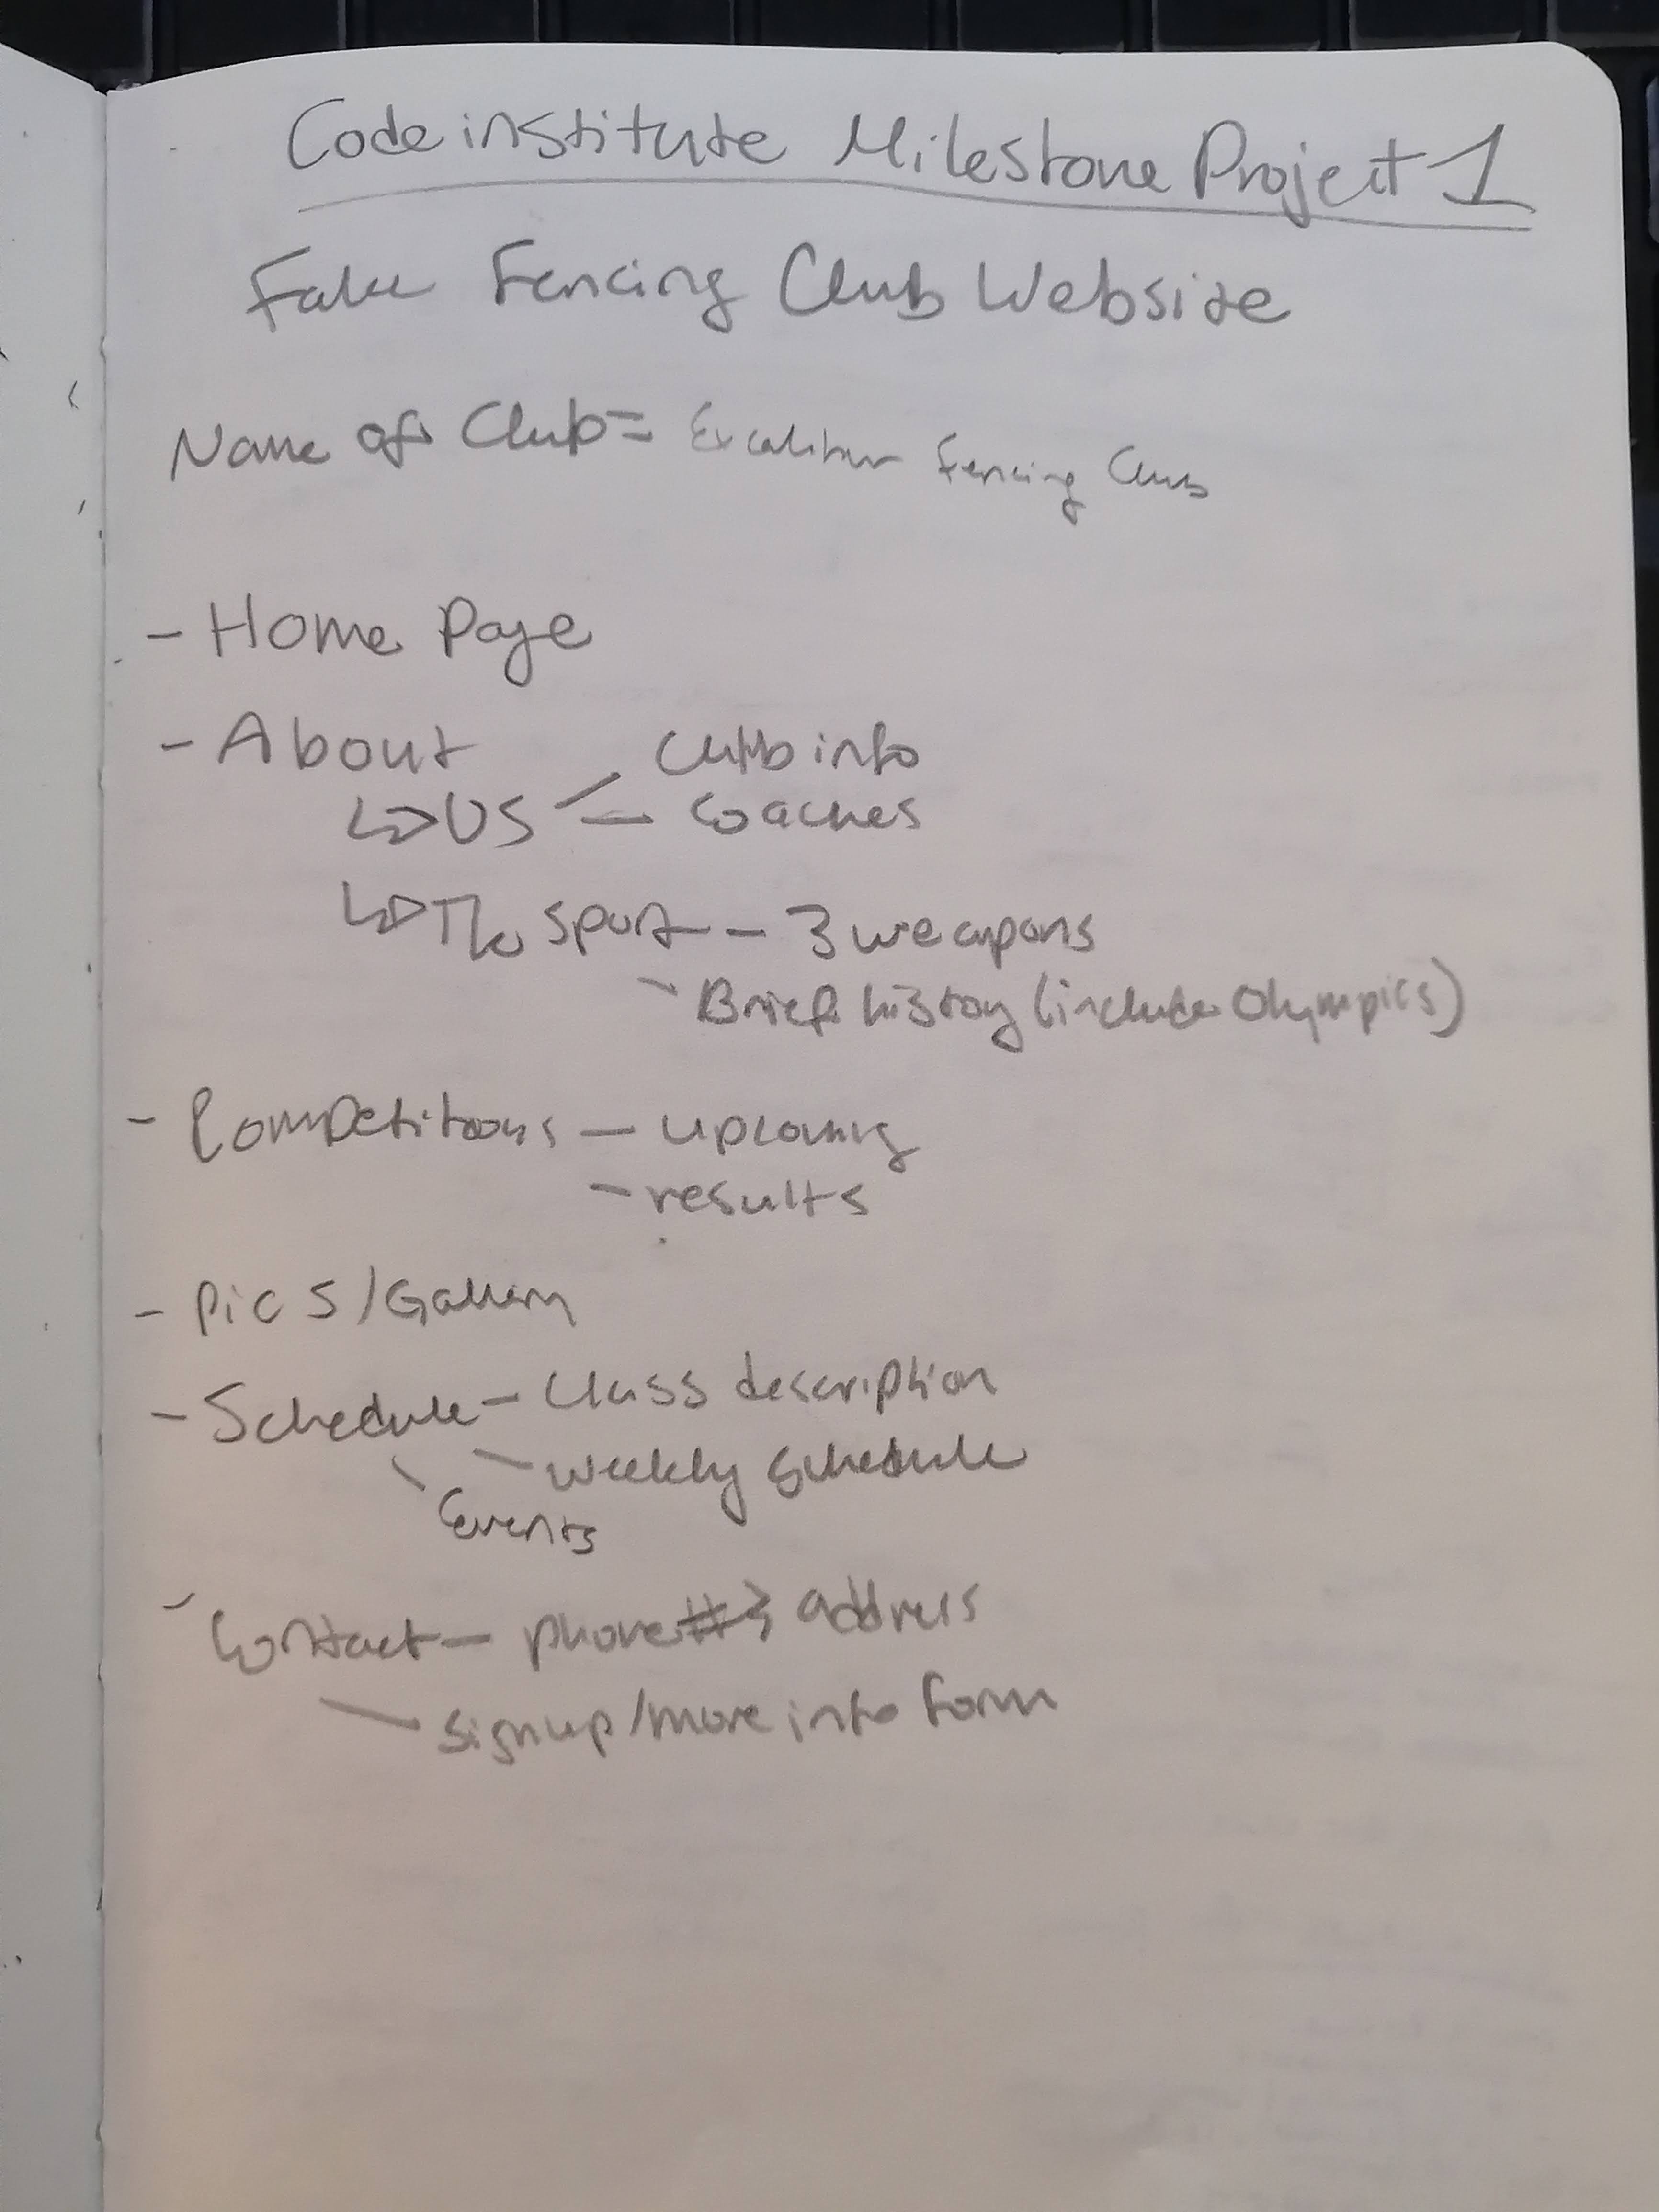 Code institute Milestone Project 1
Fake Fencing Club Website
Name of Club = Excalibur Fencing Club
- Home Page
- About
Club info
↳ US - Coaches
↳ The sport - 3 weapons
- Brief history (include Olympics)
- Competitions - upcoming
- results
- Pics/Gallery
- Schedule - Class description
- weekly schedule
- Events
- Contact - phone #, address
- signup/more info form